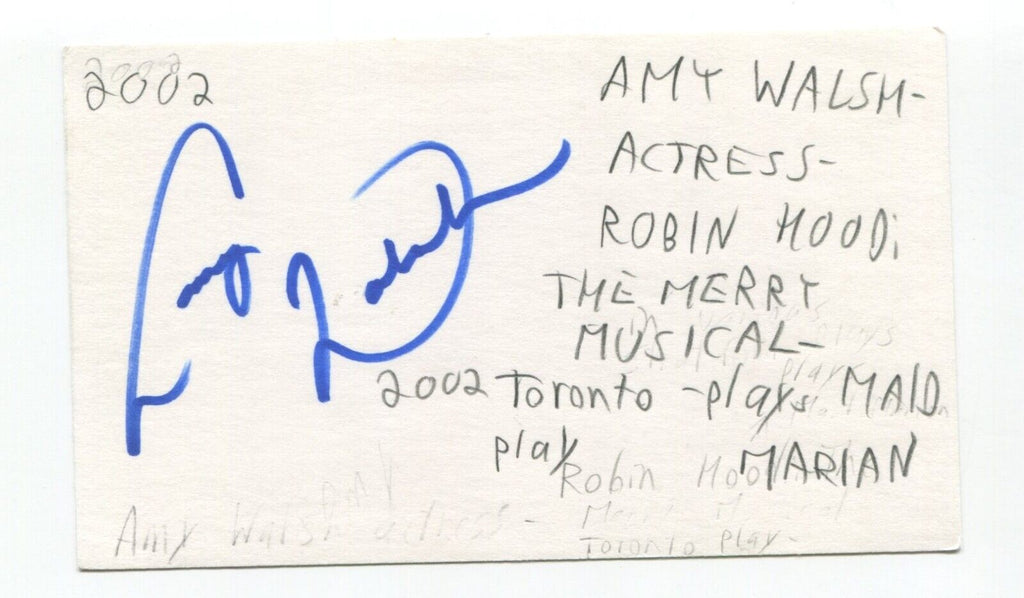 2002
AMY WALSH-
ACTRESS-
ROBIN HOOD;
THE MERRY
MUSICAL-
2002 Toronto -plays MAID
play MARIAN
Amy Walsh actress - Robin Hood
Merry Musical
Toronto play-